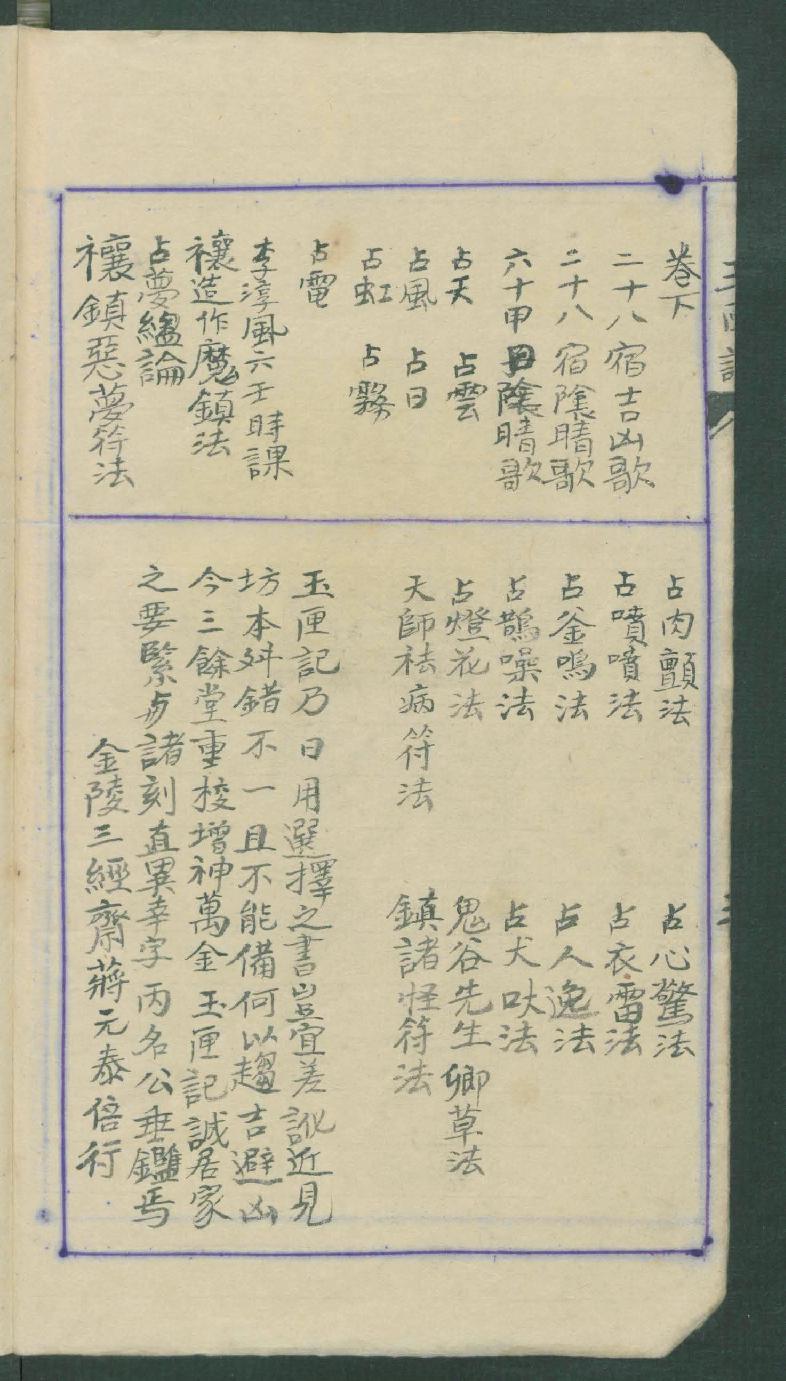 卷下
二十八宿吉凶歌
二十八宿陰晴歌
六十甲子陰晴歌
占天 占雲
占風 占日
占虹 占霧
占電
李淳風六壬時課
禳造作魘鎮法
占夢總論
禳鎮惡夢符法
占肉顫法 占心驚法
占噴嚏法 占衣留法
占釜鳴法 占人逸法
占鵲噪法 占犬吠法
占燈花法 鬼谷先生卿草法
天師祛病符法 鎮諸怪符法
玉匣記乃日用選擇之書豈宜差訛近見
坊本舛錯不一且不能備何以趨吉避凶
今三餘堂重梭增神萬金玉匣記誠居家
之要緊与諸刻直異幸字內名公垂鑑焉
金陵三經齋蔣元泰偣行
三